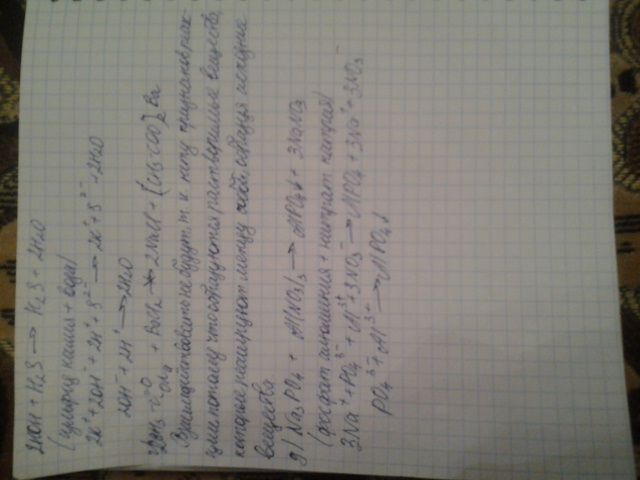 2KOH + H₂S → K₂S + 2H₂O
(сульфид калия + вода)
2K⁺ + 2OH⁻ + 2H⁺ + S²⁻ → 2K⁺ + S²⁻ + 2H₂O
2OH⁻ + 2H⁺ → 2H₂O
CH₃ - C O ONa + BaCl₂ ↛ 2NaCl + (CH₃COO)₂Ba
Взаимодействовать не будут, т. к. нету признаков реак-
ции потому что образуются растворимые вещества,
которые реагируют между собой, образуя исходные
вещества.
g) Na₃PO₄ + Al(NO₃)₃ → AlPO₄↓ + 3NaNO₃
(фосфат алюминия + нитрат натрия)
3Na⁺ + PO₄³⁻ + Al³⁺ + 3NO₃⁻ → AlPO₄ + 3Na⁺ + 3NO₃⁻
PO₄³⁻ + Al³⁺ → AlPO₄↓